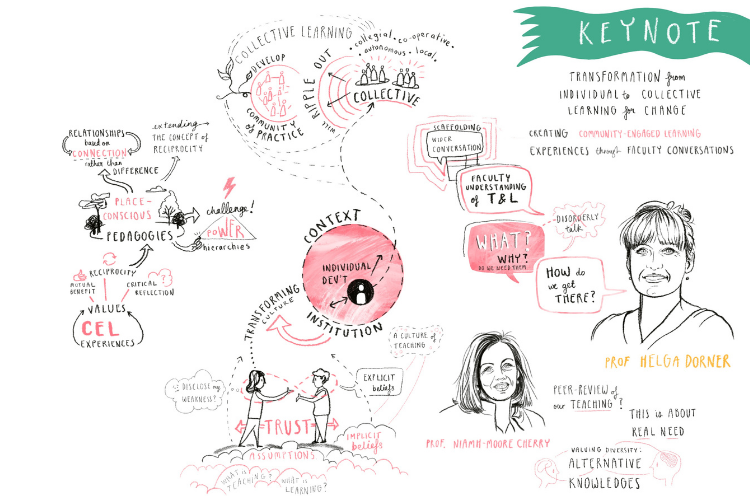 KEYNOTE
TRANSFORMATION from
INDIVIDUAL to COLLECTIVE
LEARNING for CHANGE
CREATING COMMUNITY-ENGAGED LEARNING
EXPERIENCES through FACULTY CONVERSATIONS
COLLECTIVE LEARNING
DEVELOP
COMMUNITY
of PRACTICE
WILL RIPPLE OUT
collegial · co-operative ·
autonomous · local ·
COLLECTIVE
RELATIONSHIPS
based on
CONNECTION
rather than
DIFFERENCE
extending
THE CONCEPT of
RECIPROCITY
PLACE-
CONSCIOUS
PEDAGOGIES
challenge!
POWER
hierarchies
RECIPROCITY
MUTUAL
BENEFIT
CRITICAL
REFLECTION
VALUES
CEL
EXPERIENCES
CONTEXT
INDIVIDUAL
DEV'T
INSTITUTION
TRANSFORMING
CULTURE
SCAFFOLDING
WIDER
CONVERSATION
FACULTY
UNDERSTANDING
of T&L
DISORDERLY
talk
WHAT?
WHY?
DO WE NEED THEM
HOW do
we get
THERE?
PROF HELGA DORNER
A CULTURE of
TEACHING
DISCLOSE my
WEAKNESS?
EXPLICIT
beliefs
TRUST
IMPLICIT
beliefs
ASSUMPTIONS
WHAT IS
TEACHING?
WHAT IS
LEARNING?
PROF. NIAMH-MOORE CHERRY
PEER-REVIEW of
our TEACHING?
THIS is ABOUT
REAL NEED
VALUING DIVERSITY:
ALTERNATIVE
KNOWLEDGES